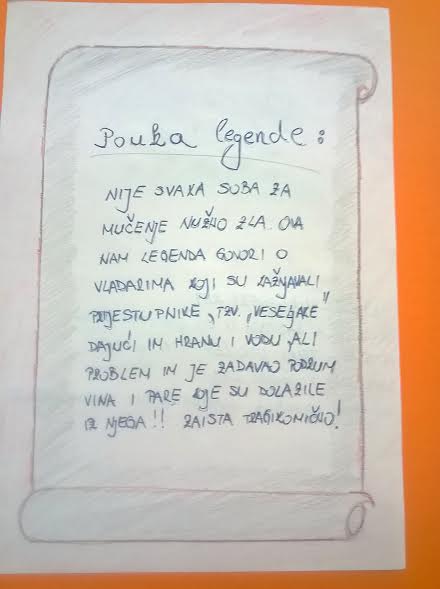 Pouka legende:
NIJE SVAKA SOBA ZA
MUČENJE NUŽNO ZLA. OVA
NAM LEGENDA GOVORI O
VLADARIMA KOJI SU KAŽNJAVALI
PRIJESTUPNIKE, TZV. „VESELJAKE"
DAJUĆI IM HRANU I VODU, ALI
PROBLEM IM JE ZADAVAO PODRUM
VINA I PARE KOJE SU DOLAZILE
IZ NJEGA!! ZAISTA TRAGIKOMIČNO!